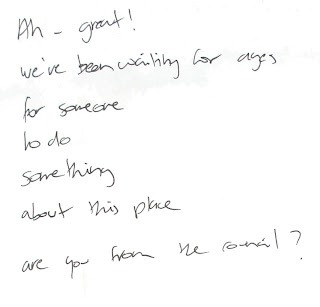 Ah - great!
we've been waiting for ages
for someone
to do
something
about this place
are you from the council?